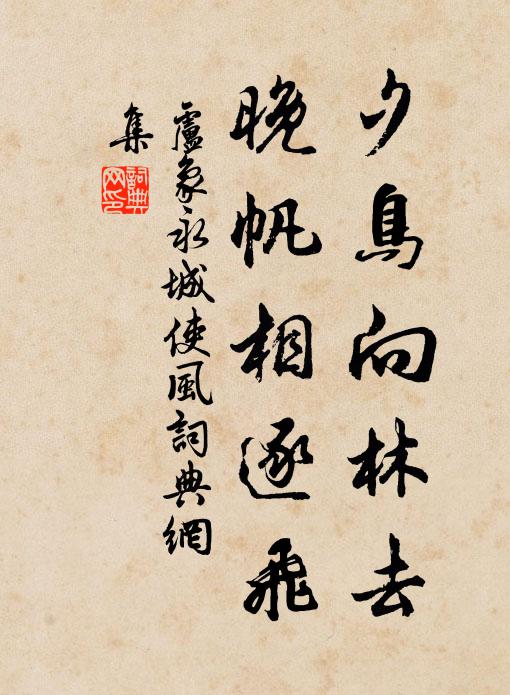 夕鳥向林去
晚帆相逐飛
盧象永城使風詞典網
集
詞典
网印